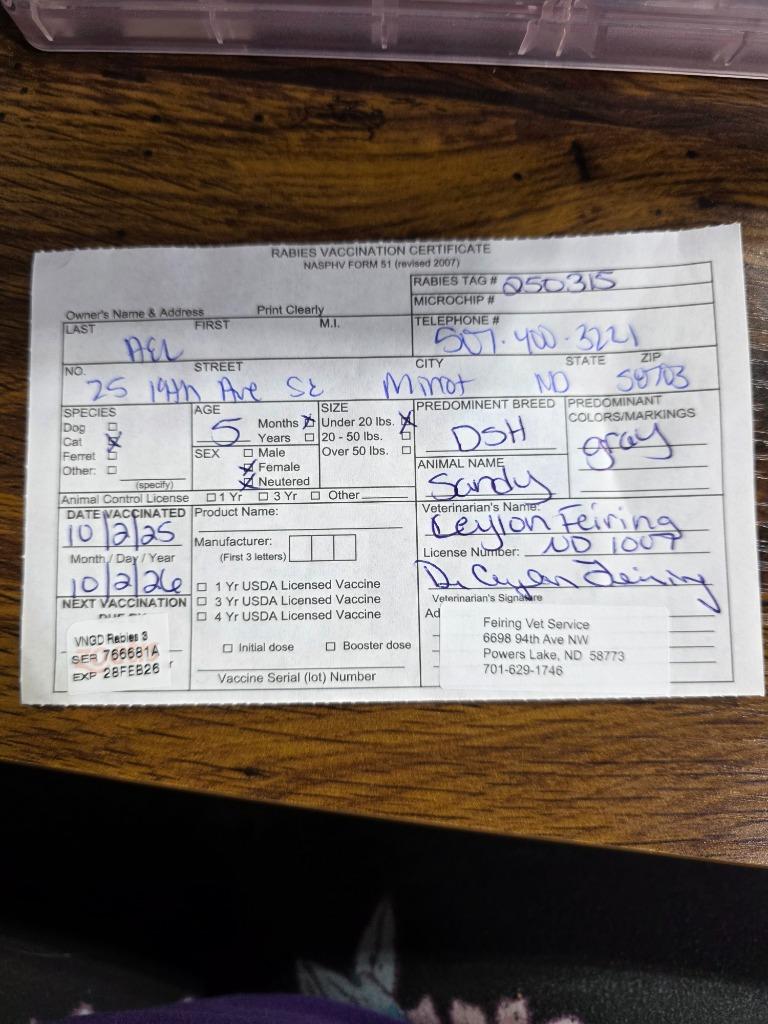 RABIES VACCINATION CERTIFICATE
NASPHV FORM 51 (revised 2007)
RABIES TAG # 250315
MICROCHIP #
Owner's Name & Address Print Clearly
LAST FIRST M.I.
TELEPHONE #
507·400·3221
NO. STREET CITY STATE ZIP
25 19th Ave SE Minot ND 58703
SPECIES
Dog
Cat
Ferret
Other:
(specify)
AGE
5 Months
Years
SEX Male
Female
Neutered
SIZE
Under 20 lbs.
20 - 50 lbs.
Over 50 lbs.
PREDOMINENT BREED
DSH
PREDOMINANT
COLORS/MARKINGS
gray
ANIMAL NAME
Sandy
Animal Control License 1 Yr 3 Yr Other
DATE VACCINATED
10/2/25
Month / Day / Year
10/2/26
NEXT VACCINATION
VNGD Rabies 3
SER 766681A
EXP 28FEB26
Product Name:
Manufacturer:
(First 3 letters)
1 Yr USDA Licensed Vaccine
3 Yr USDA Licensed Vaccine
4 Yr USDA Licensed Vaccine
Initial dose Booster dose
Vaccine Serial (lot) Number
Veterinarian's Name:
Ceylon Feiring
License Number: ND 1007
Dr Ceylon Feiring
Veterinarian's Signature
Ad
Feiring Vet Service
6698 94th Ave NW
Powers Lake, ND 58773
701-629-1746